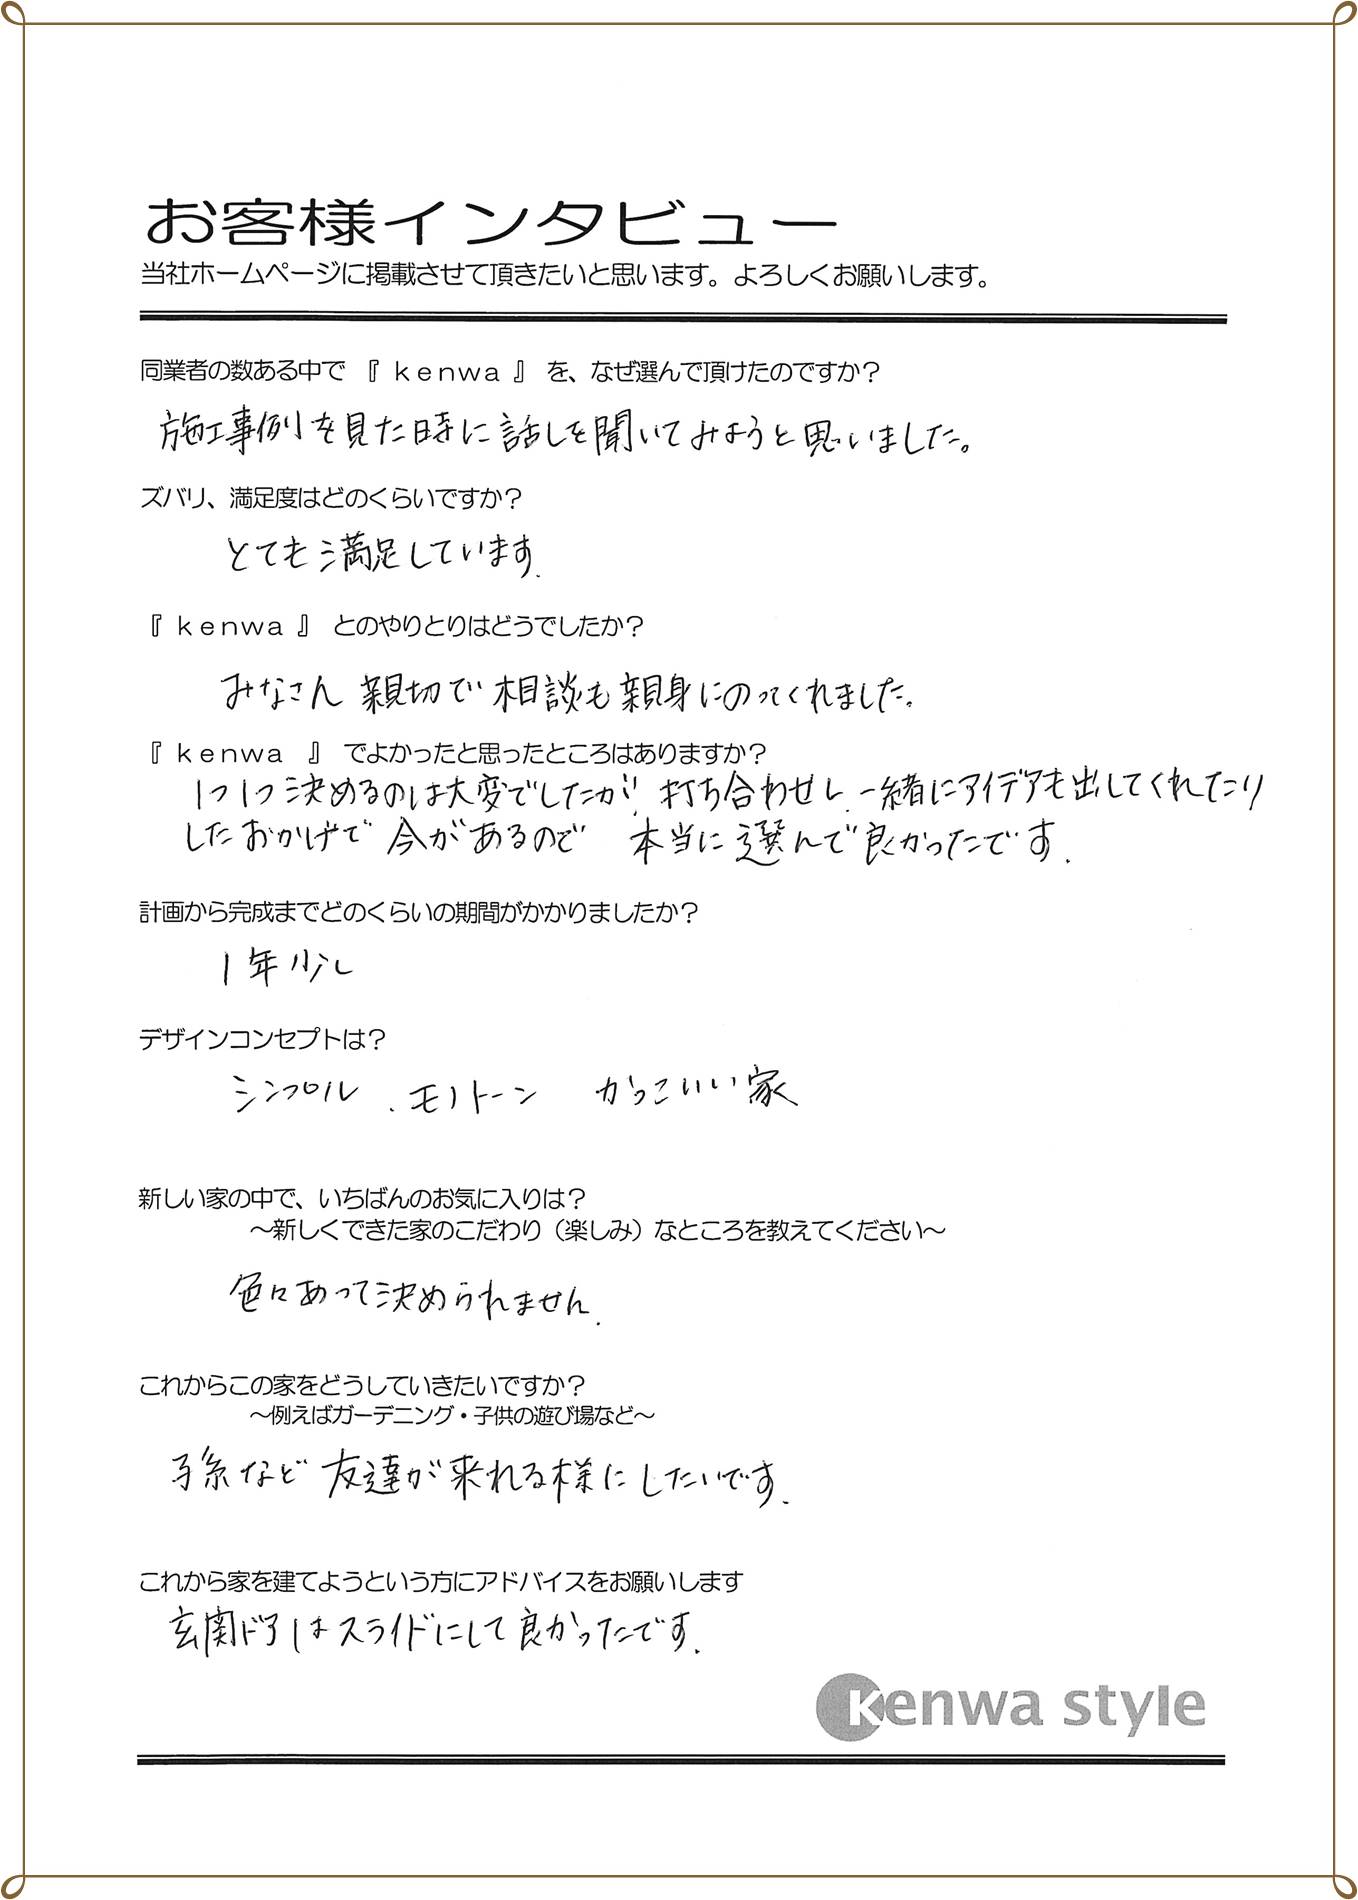 お客様インタビュー
当社ホームページに掲載させて頂きたいと思います。よろしくお願いします。
同業者の数ある中で 『 kenwa 』 を、なぜ選んで頂けたのですか?
施工事例を見た時に話しを聞いてみようと思いました。
ズバリ、満足度はどのくらいですか?
とても満足しています.
『 kenwa 』 とのやりとりはどうでしたか?
みなさん 親切で 相談も親身にのってくれました.
『 kenwa 』 でよかったと思ったところはありますか?
1つ1つ決めるのは大変でしたが、打ち合わせし、一緒にアイデアも出してくれたり
したおかげで 今があるので 本当に選んで良かったです.
計画から完成までどのくらいの期間がかかりましたか?
1年少し
デザインコンセプトは?
シンプル . モノトーン かっこいい家
新しい家の中で、いちばんのお気に入りは?
~新しくできた家のこだわり(楽しみ)なところを教えてください~
色々あって決められません.
これからこの家をどうしていきたいですか?
~例えばガーデニング・子供の遊び場など~
孫など 友達が来れる様にしたいです.
これから家を建てようという方にアドバイスをお願いします
玄関ドアはスライドにして良かったです.
kenwa style